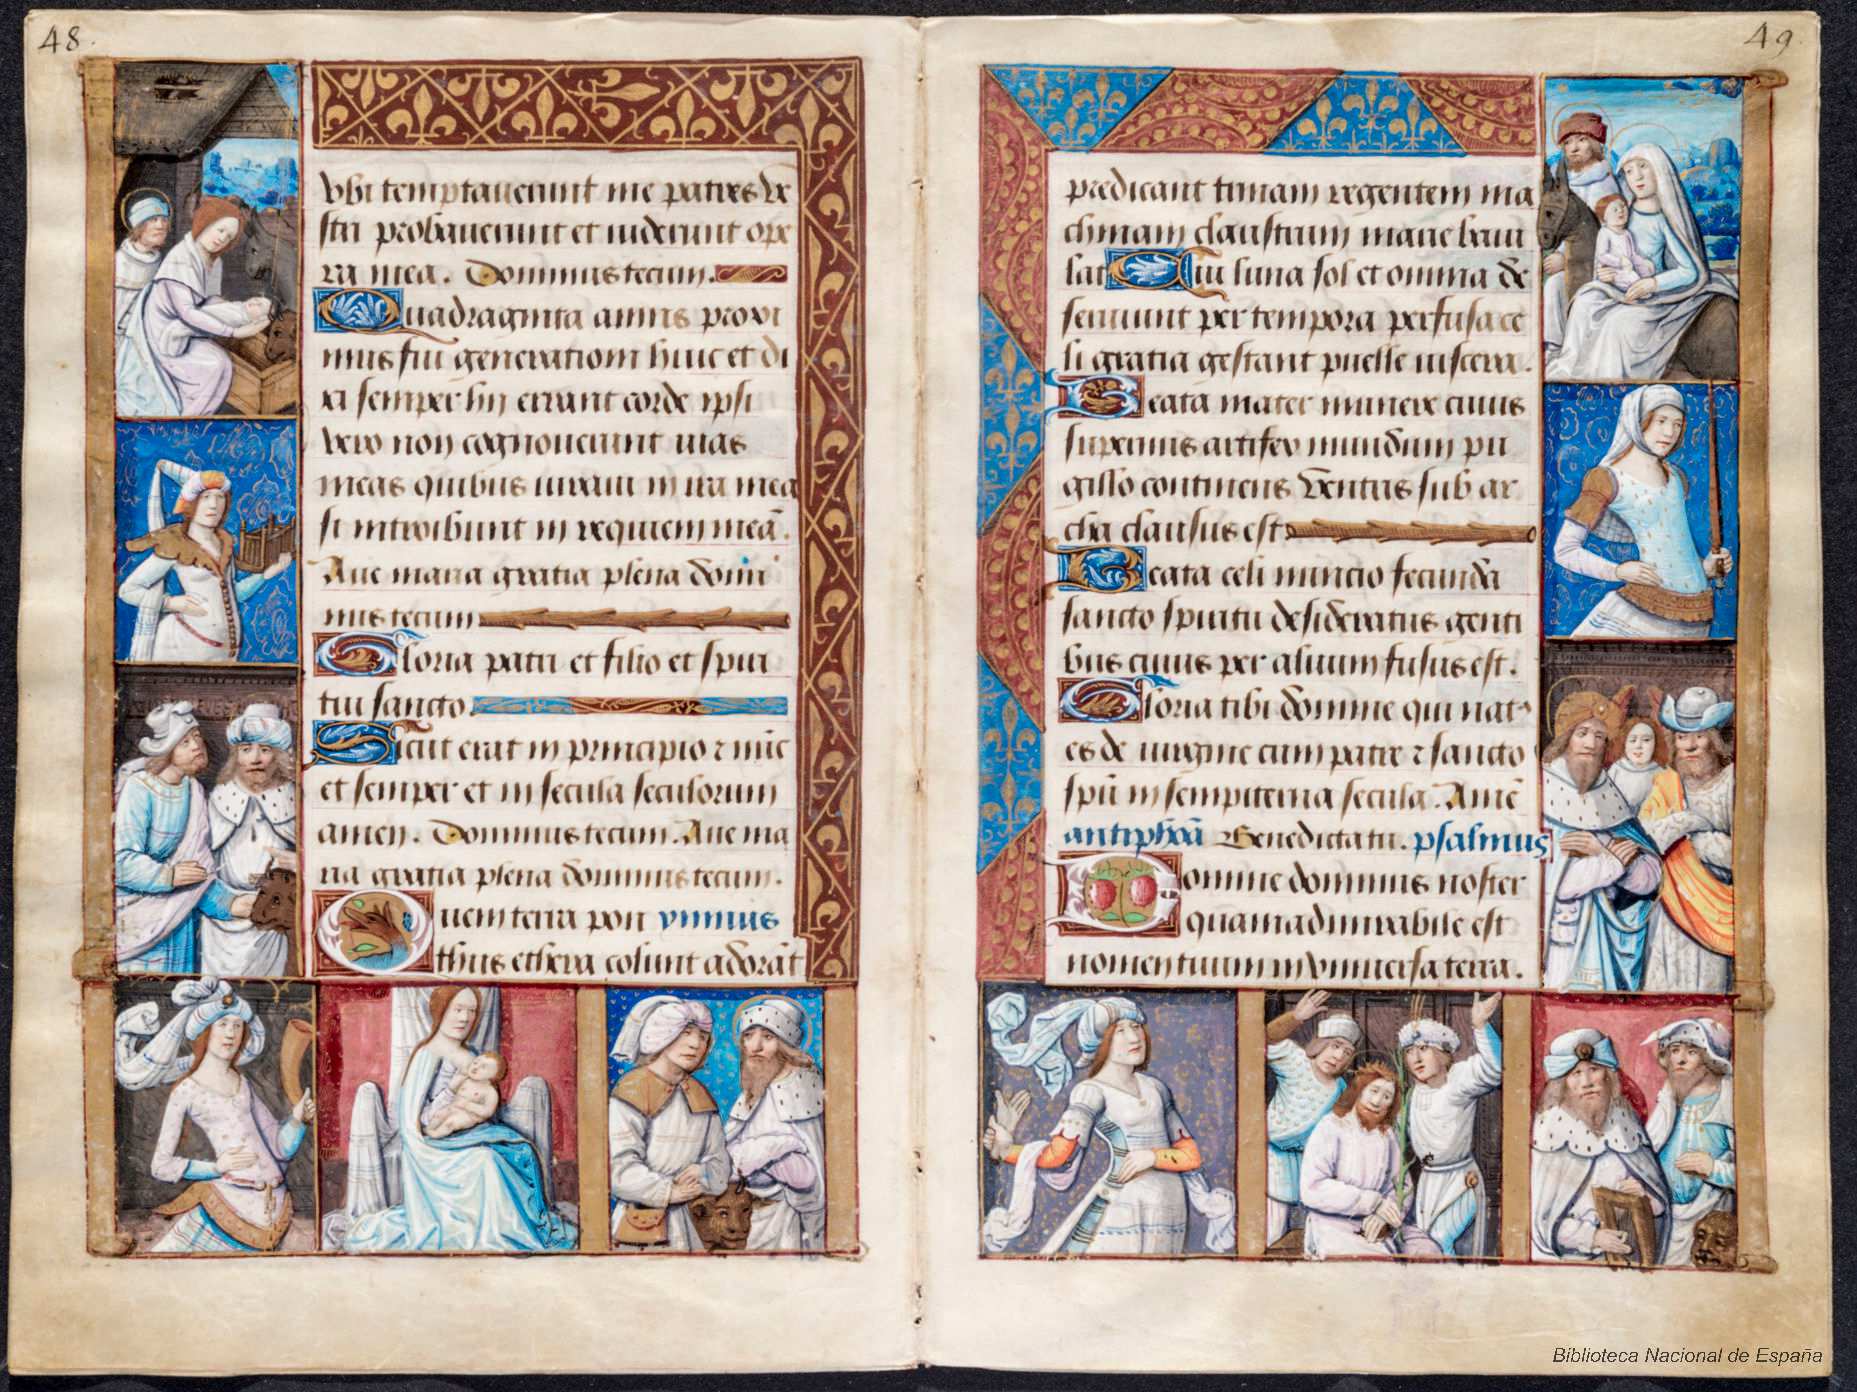 48.
Vbi temptauerunt me patres ve
stri probauerunt et uiderunt ope
ra mea. Dominus tecum.
Quadraginta annis proxi
mus fui generationi huic et di
xi semper hij errant corde ipsi
vero non cognouerunt uias
meas quibus iuraui in ira mea
si introibunt in requiem meã.
Aue maria gratia plena domi
nus tecum
Gloria patri et filio et spiri
tui sancto.
Sicut erat in principio ⁊ nũc
et semper et in secula seculorum
amen. Dominus tecum. Aue ma
ria gratia plena dominus tecum.
Quem terra pont ymnus
thus ethera colunt adorãt
49.
predicant trinam regentem ma
chinam claustrum marie baiu
lat Cui luna sol et omnia de
seruiunt per tempora perfusa ce
li gratia gestant puelle uiscera.
Beata mater munere cuius
supernus artifex mundum pu
gillo continens ventris sub ar
cha clausus est
Beata celi nuncio fecunda
sancto spiritu desideratus genti
bus cuius per aluum fusus est.
Gloria tibi domine qui nat
es de uirgine cum patre ⁊ sancto
spũ in sempiterna secula. Amẽ
antiphõa Benedicta tu. psalmus
Domine dominus noster
quam admirabile est
nomen tuum in vniuersa terra.
Biblioteca Nacional de España